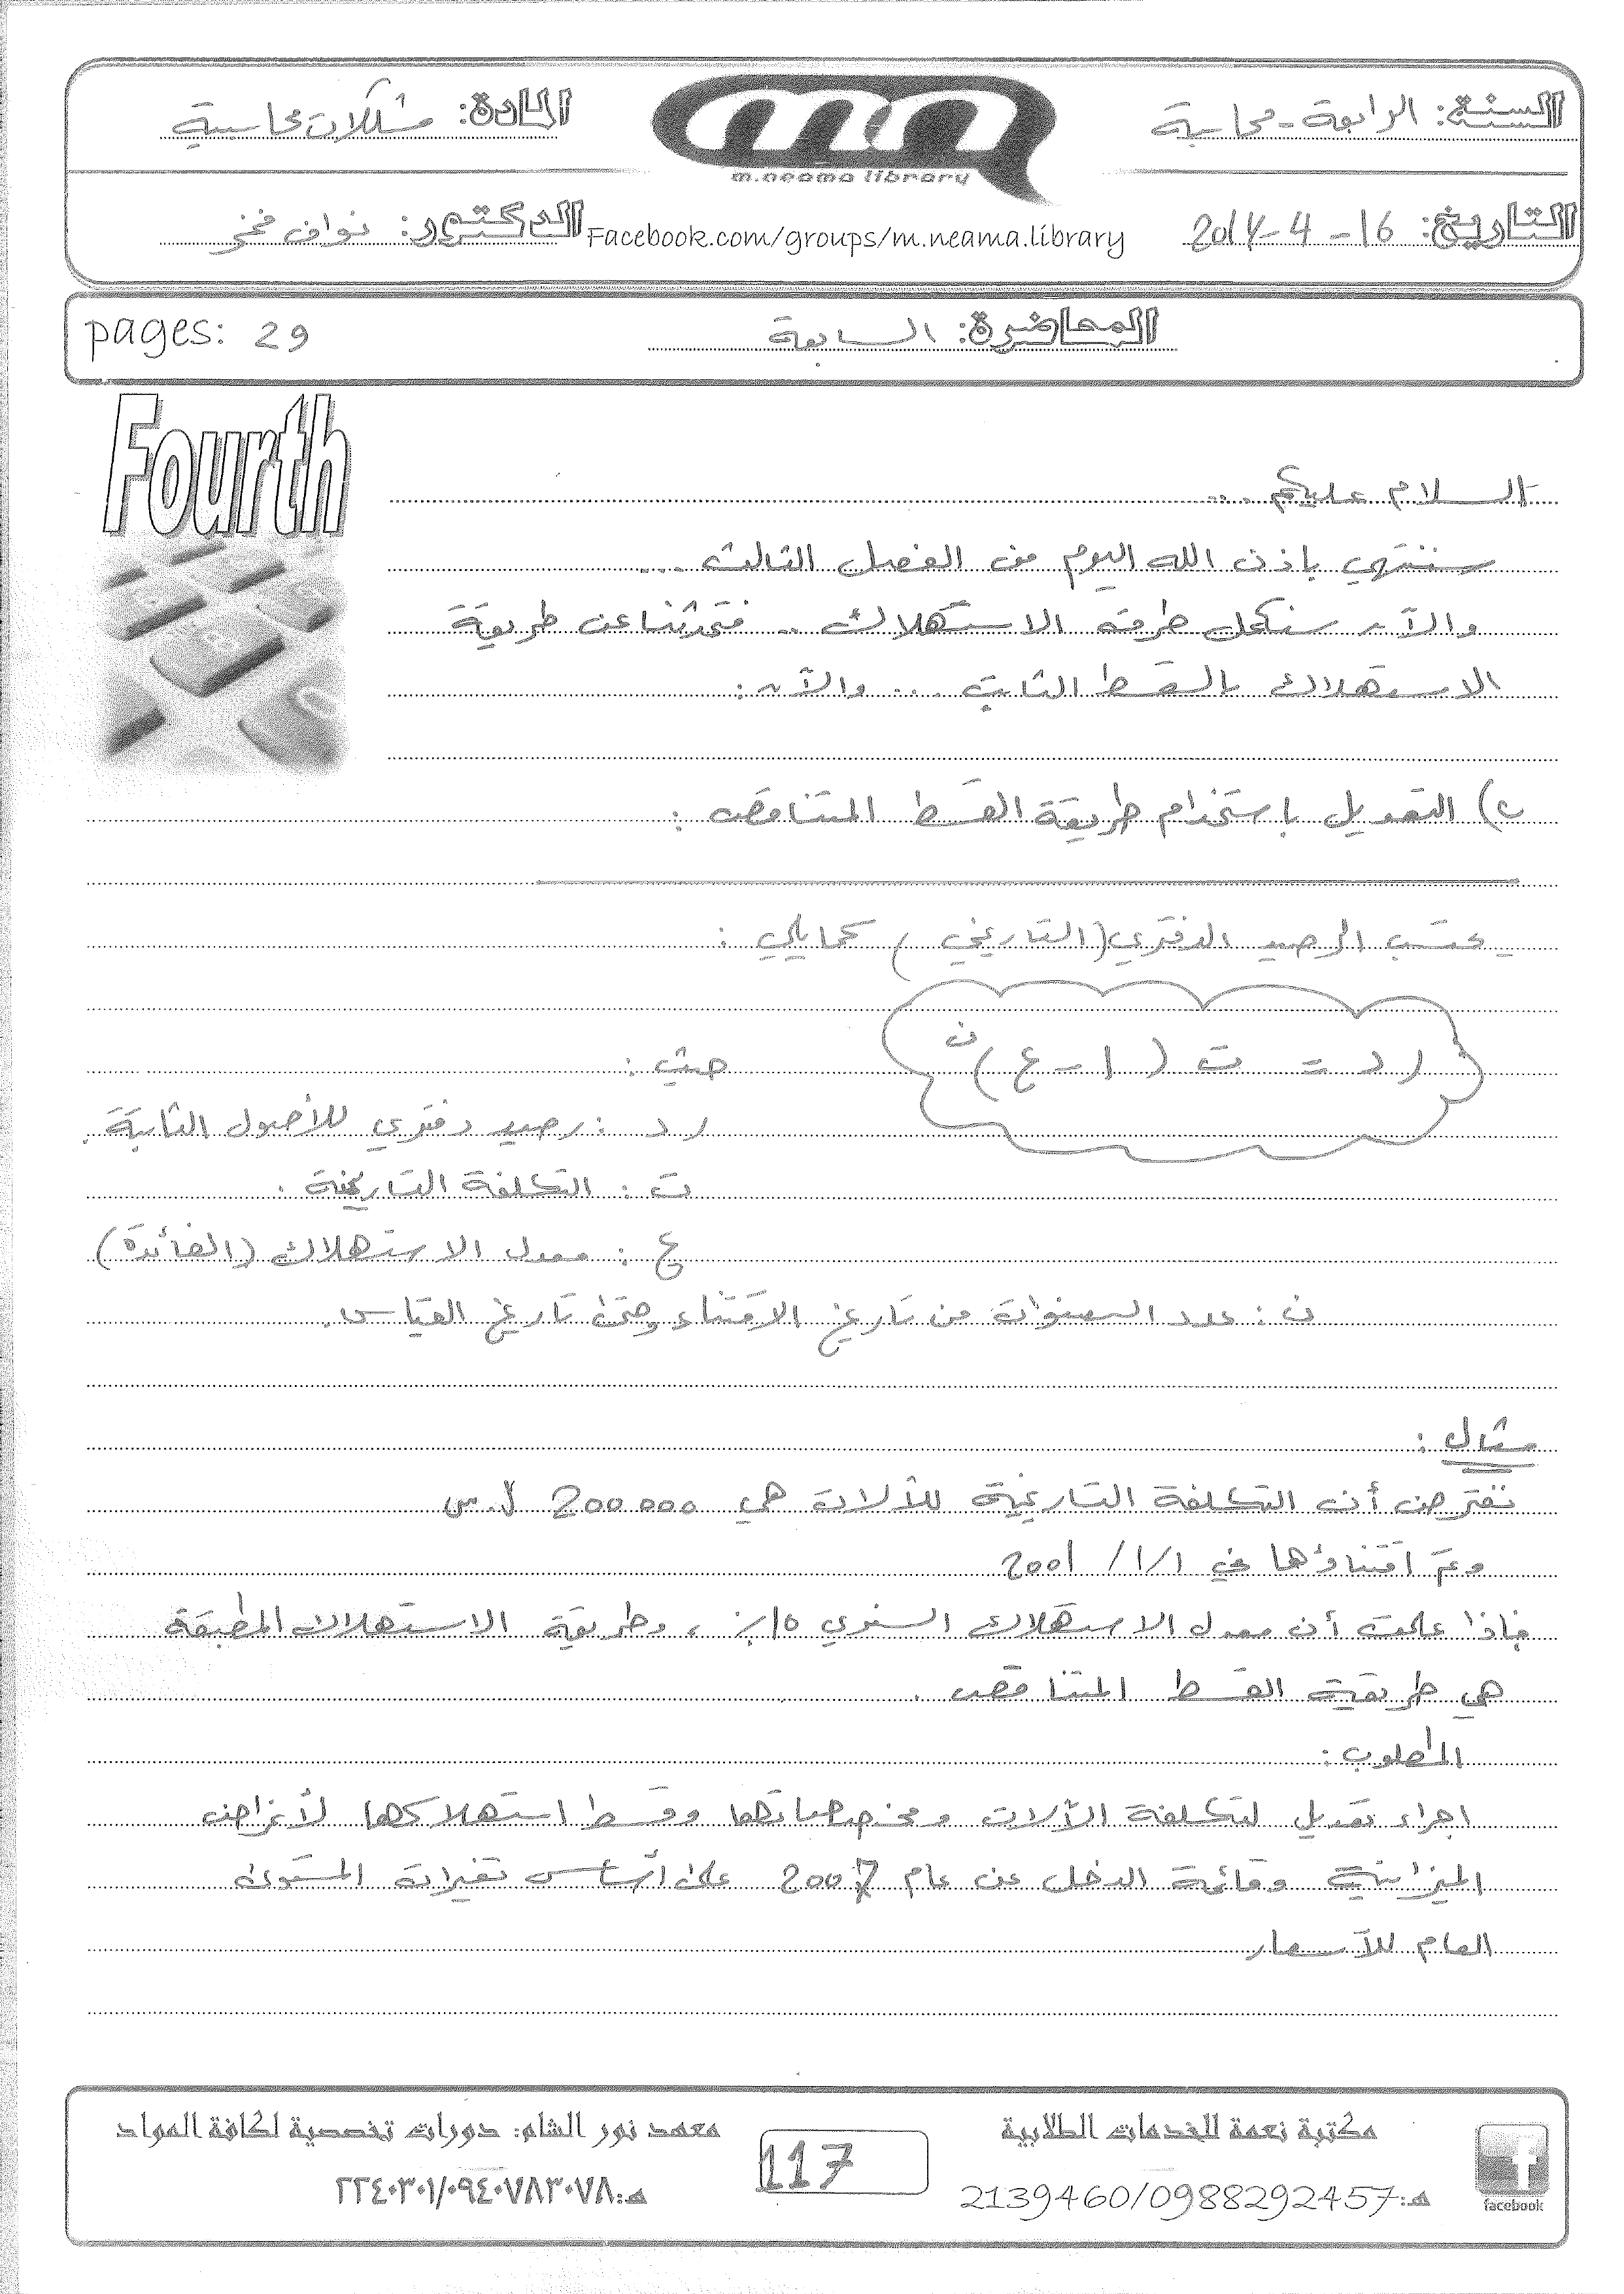 السنة: الرابعة - محاسبة
المادة: مشكلات محاسبية
m.neama library
التاريخ: 16 - 4 - 2017
Facebook.com/groups/m.neama.library
الدكتور: نواف فخر
المحاضرة: السابعة
pages: 29
Fourth
السلام عليكم ...
سننتهي باذن الله اليوم من الفصل الثالث ...
والآن سنكمل طرق الاستهلاك .. فتحدثنا عن طريقة
الاستهلاك بالقسط الثابت ... والآن :
ب) التعديل باستخدام طريقة القسط المتناقص :
يحتسب الرصيد الدفتري (التاريخي) كمايلي :
ر د = ت (١ - ع)ن
حيث :
ر د : رصيد دفتري للأصول الثابتة .
ت : التكلفة التاريخية .
ع : معدل الاستهلاك (الفائدة)
ن : عدد السنوات من تاريخ الاقتناء وحتى تاريخ القياس .
مثال :
نفترض أن التكلفة التاريخية للآلات هي 200000 ل.س
وتم اقتناؤها في ١/١/ 2001
فإذا علمت أن معدل الاستهلاك السنوي ١٥٪ ، وطريقة الاستهلاك المطبقة
هي طريقة القسط المتناقص .
المطلوب :
اجراء تعديل لتكلفة الآلات ومخصصاتها وقسط استهلاكها لأغراض
الميزانية وقائمة الدخل عن عام 2007 على أساس تغيرات المستوى
العام للأسعار
مكتبة نعمة للخدمات الطلابية
هـ: 2139460/0988292457
117
معهد نور الشام: دورات تخصصية لكافة المواد
هـ: ٢٢٤٠٣٠١/٠٩٤٠٧٨٣٠٧٨
facebook